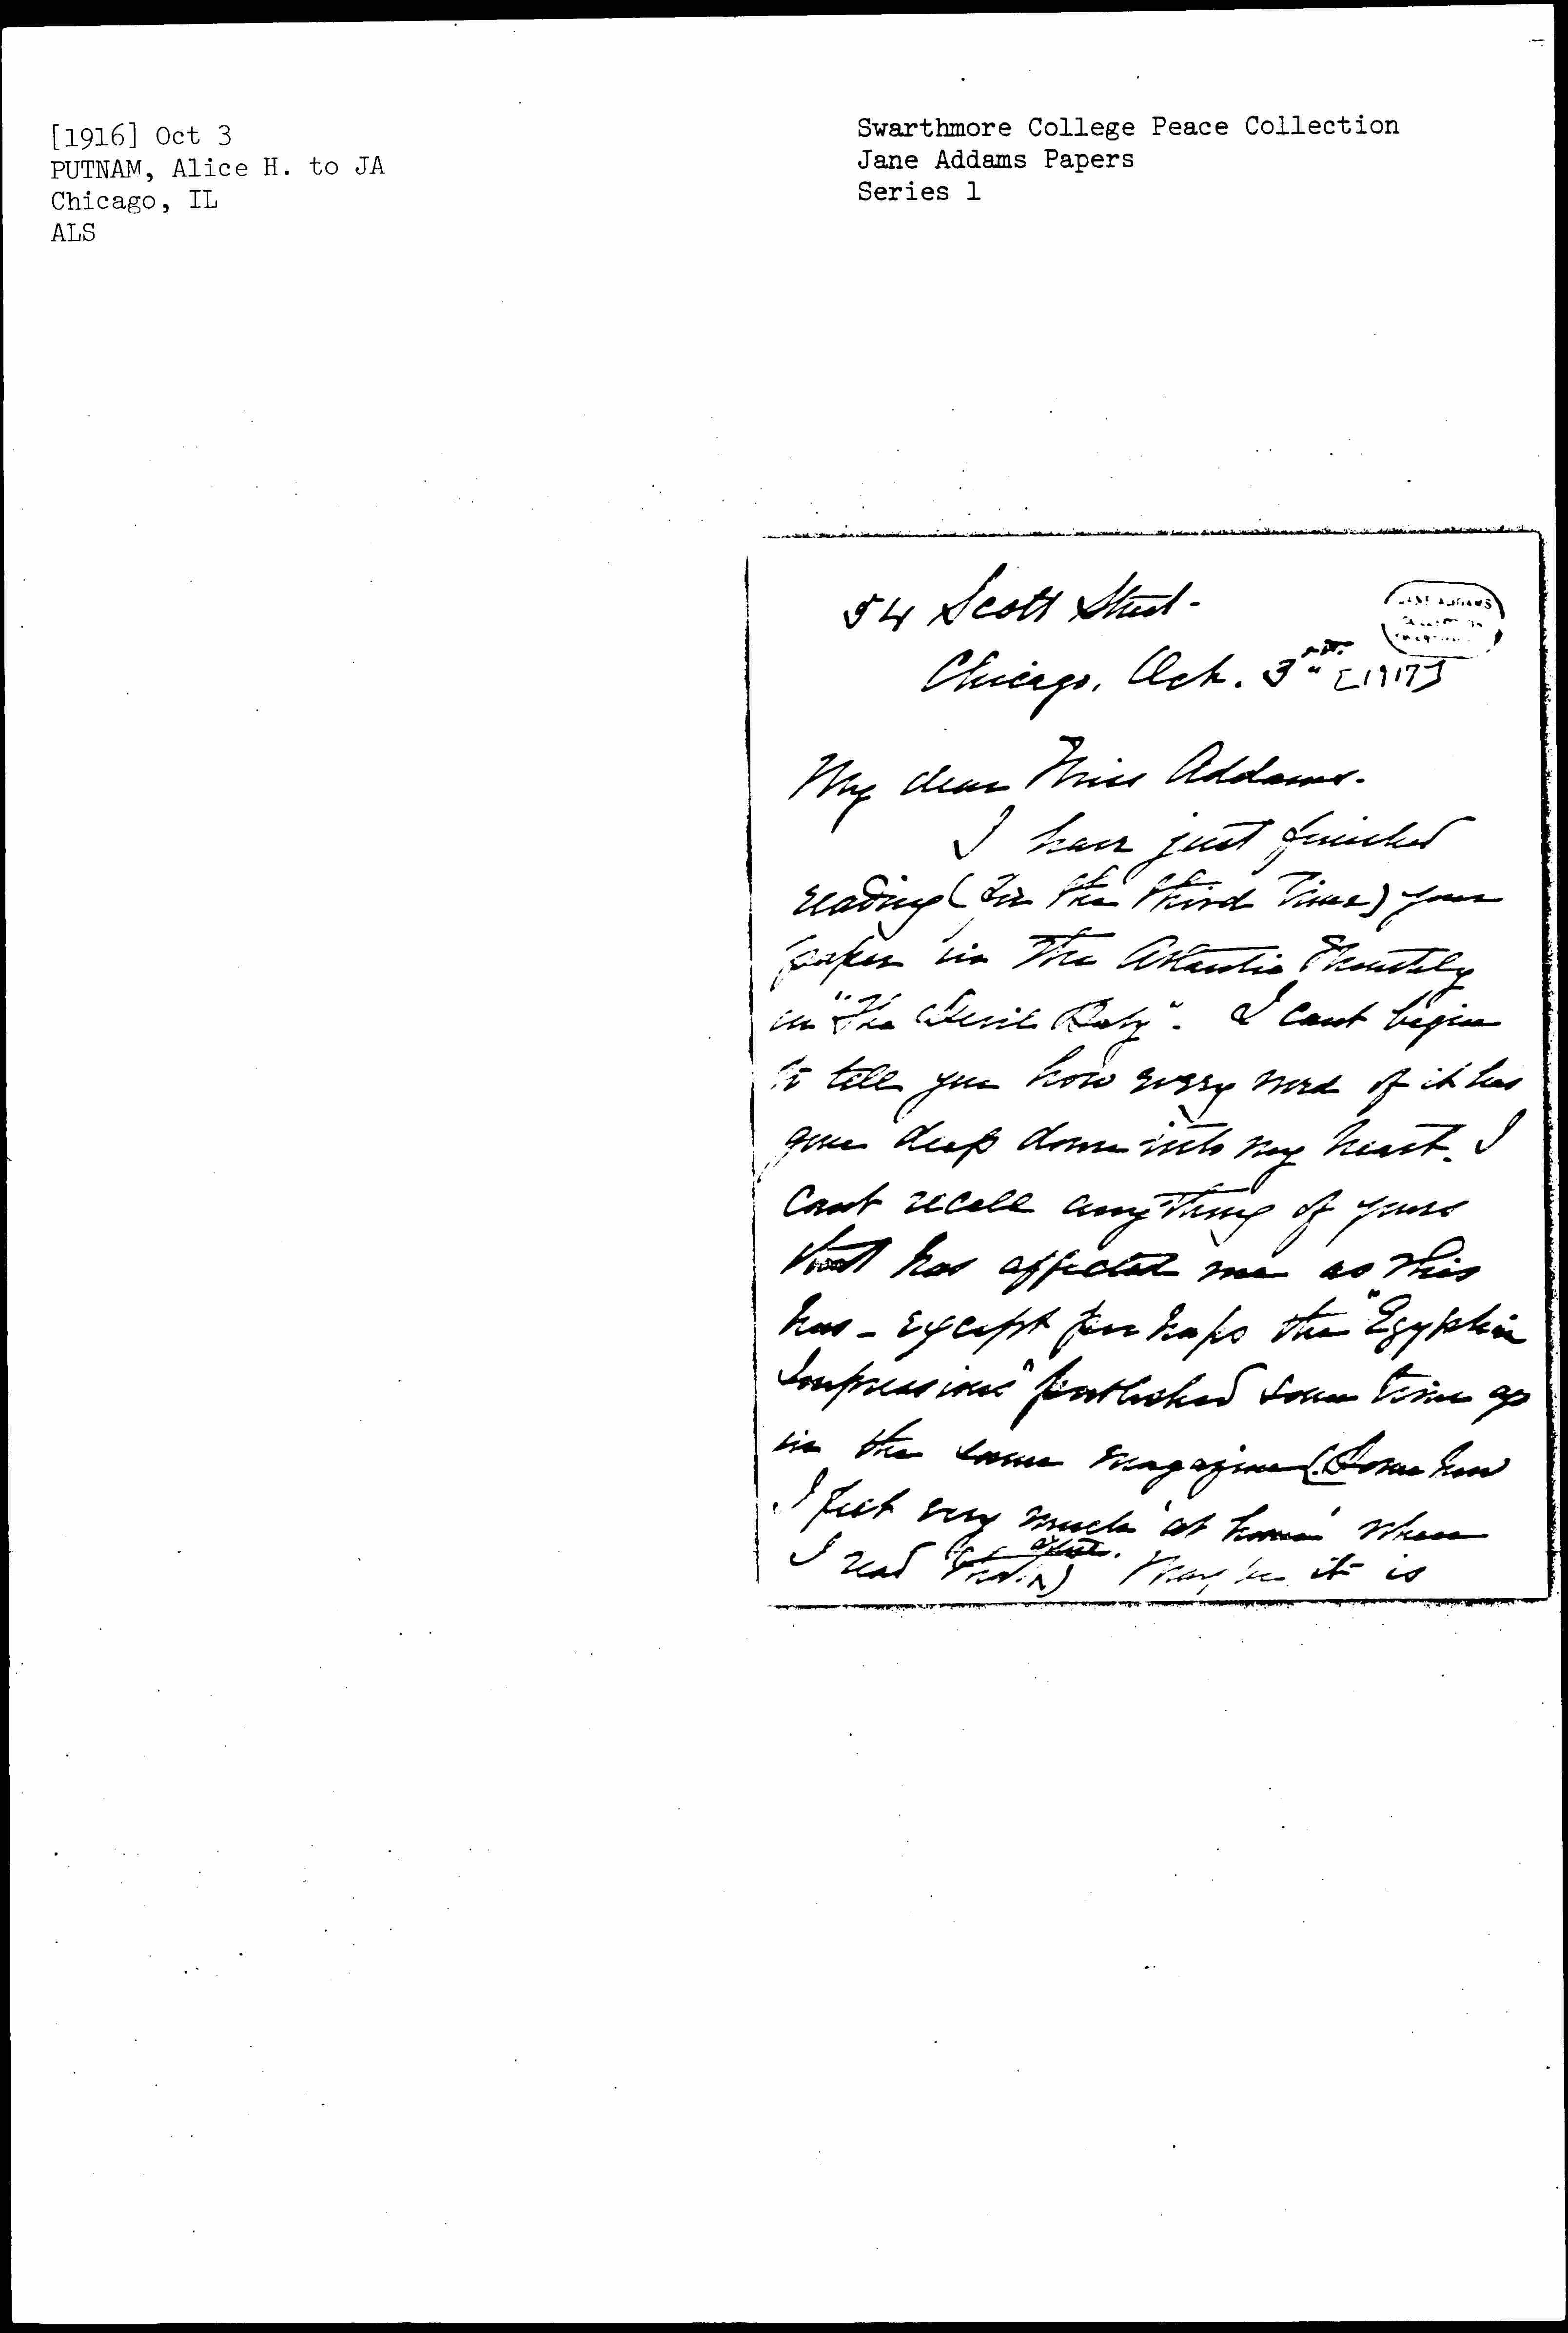 [1916] Oct 3
PUTNAM, Alice H. to JA
Chicago, IL
ALS
Swarthmore College Peace Collection
Jane Addams Papers
Series 1
54 Scott Street-
JANE ADDAMS
Chicago, Oct. 3" [1917]
My dear Miss Addams-
I have just finished
reading (for the third time) your
paper in The Atlantic Monthly
on "The Devil Baby". I cant begin
to tell you how every word of it has
gone deep down into my heart. I
cant recall anything of yours
that has affected me as this
has - except perhaps the "Egyptian
Impressions" published some time ago
in the same magazine (Some how
I felt very much 'at home' when
I read that.) May be it is